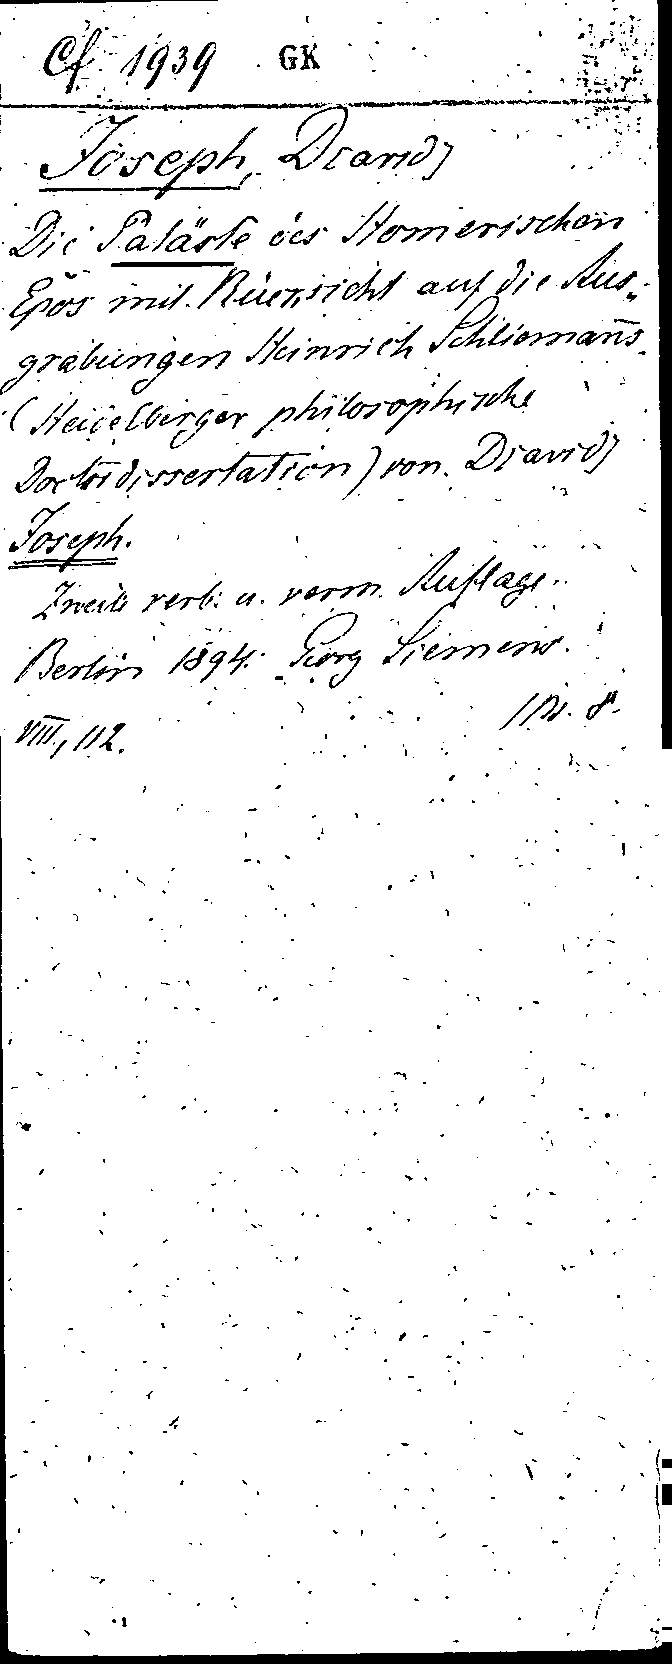 Cf 1939 GK
Joseph, D[avid]
Die Paläste des Homerischen
Epos mit Rücksicht auf die Aus-
grabungen Heinrich Schliemanns.
(Heidelberger philosophische
Doctordissertation) von D[avid]
Joseph.
Zweite verb. u. verm. Auflage.
Berlin 1894. Georg Siemens.
VIII, 112. 8°.